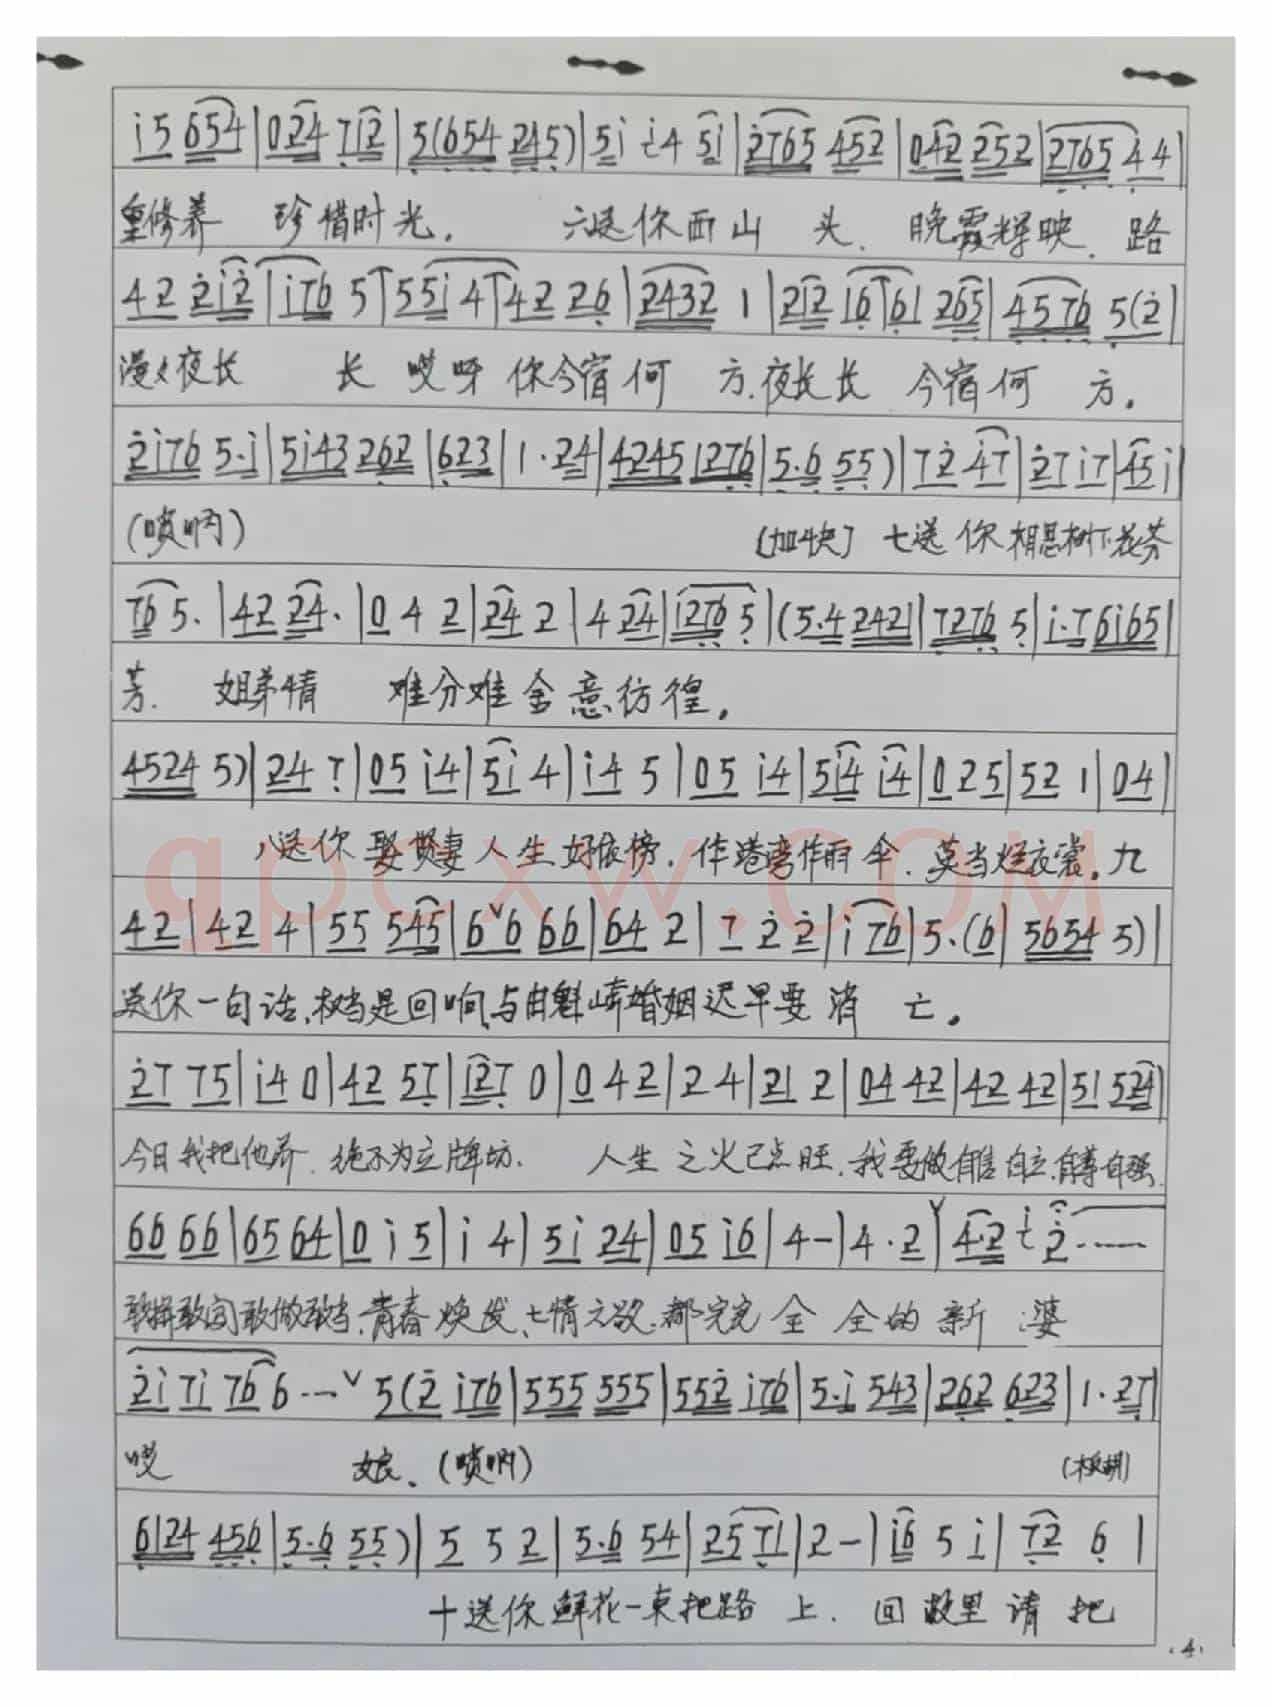 i5 654|024 7i2|5(654 245)|5i i4 5i|2765 452|042 252|2765 44|
重修养 珍惜时光. 六送你西山 头. 晚霞辉映. 路
42 2i2|i76 5|55i 4|42 26|2432 1|2i2 i6|61 265|4576 5(2|
漫々夜长 长 哎呀 你今宿何 方.夜长长 今宿何 方。
2i76 5·i|5i43 262|623|1·24|4245 1276|5·6 55)|72 47|27 i7|45 i|
(唢呐) [加快] 七送你相思树下花芬
76 5·|42 24·|0 4 2|24 2|4 24|i276 5|(5·4 2421|7276 5|i·7 6i65|
芳. 姐弟情 难分难舍意彷徨。
4524 5)|24 7|05 i4|5i 4|i4 5|05 i4|5i4 i4|0 25|52 1|04|
八送你娶贤妻人生好依傍. 作港湾作雨伞. 莫当烂衣裳。九
42|42 4|55 545|6ˇ6 66|64 2|7 2 2|i 76|5·(6|5654 5)|
送你一句话、权当是回响、与由魁 婚姻迟早要 消 亡。
27 75|i4 0|42 57|i27 0|0 42|24|21 2|04 42|42 42|51 524|
今日我把他弃. 绝不为立牌坊. 人生 之火已点旺.我要做自信自立.自尊自强.
66 66|65 64|0 i 5|i 4|5i 24|05 i6|4-|4·2ˇ|4·2 i 2······
敢拼敢闯敢做敢当、青春焕发、七情六欲.都完完全 全的新 婆
2i 7i 76 6···ˇ5(2 i76|555 555|552 i76|5·i 543|262 623|1·27|
哎 娘、(唢呐) (板胡)
6124 456|5·6 55)|5 5 2|5·6 54|25 71|2-|i6 5 i|72 6|
十送你鲜花一束把路 上. 回故里 请 把
·4·
qpcxw.com